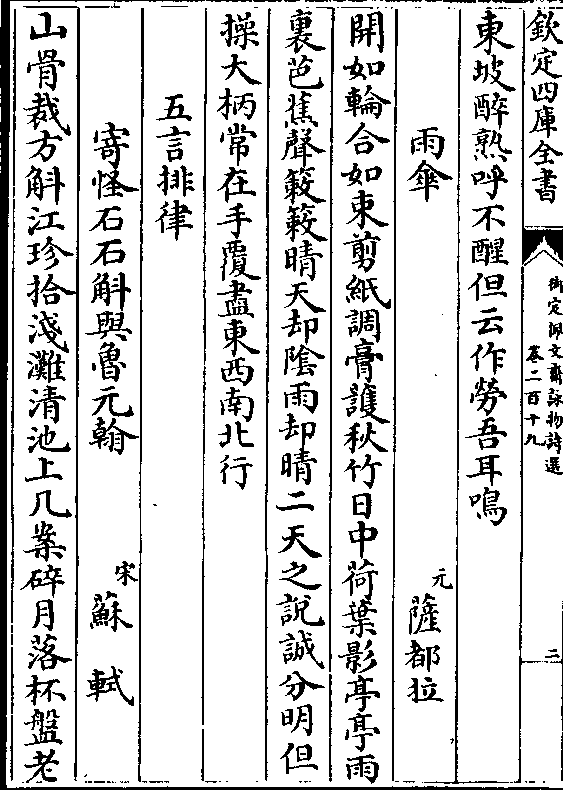 欽定四庫全書
御定佩文齋詠物詩選
卷二百十九
二
東坡醉熟呼不醒但云作勞吾耳鳴
雨傘 元 薩都拉
開如輪合如束剪紙調膏護秋竹日中荷葉影亭亭雨
裏芭蕉聲簌簌晴天却陰雨却晴二天之說誠分明但
操大柄常在手覆盡東西南北行
五言排律
寄怪石石斛與魯元翰 宋 蘇軾
山骨裁方斛江珍拾淺灘清池上几案碎月落杯盤老